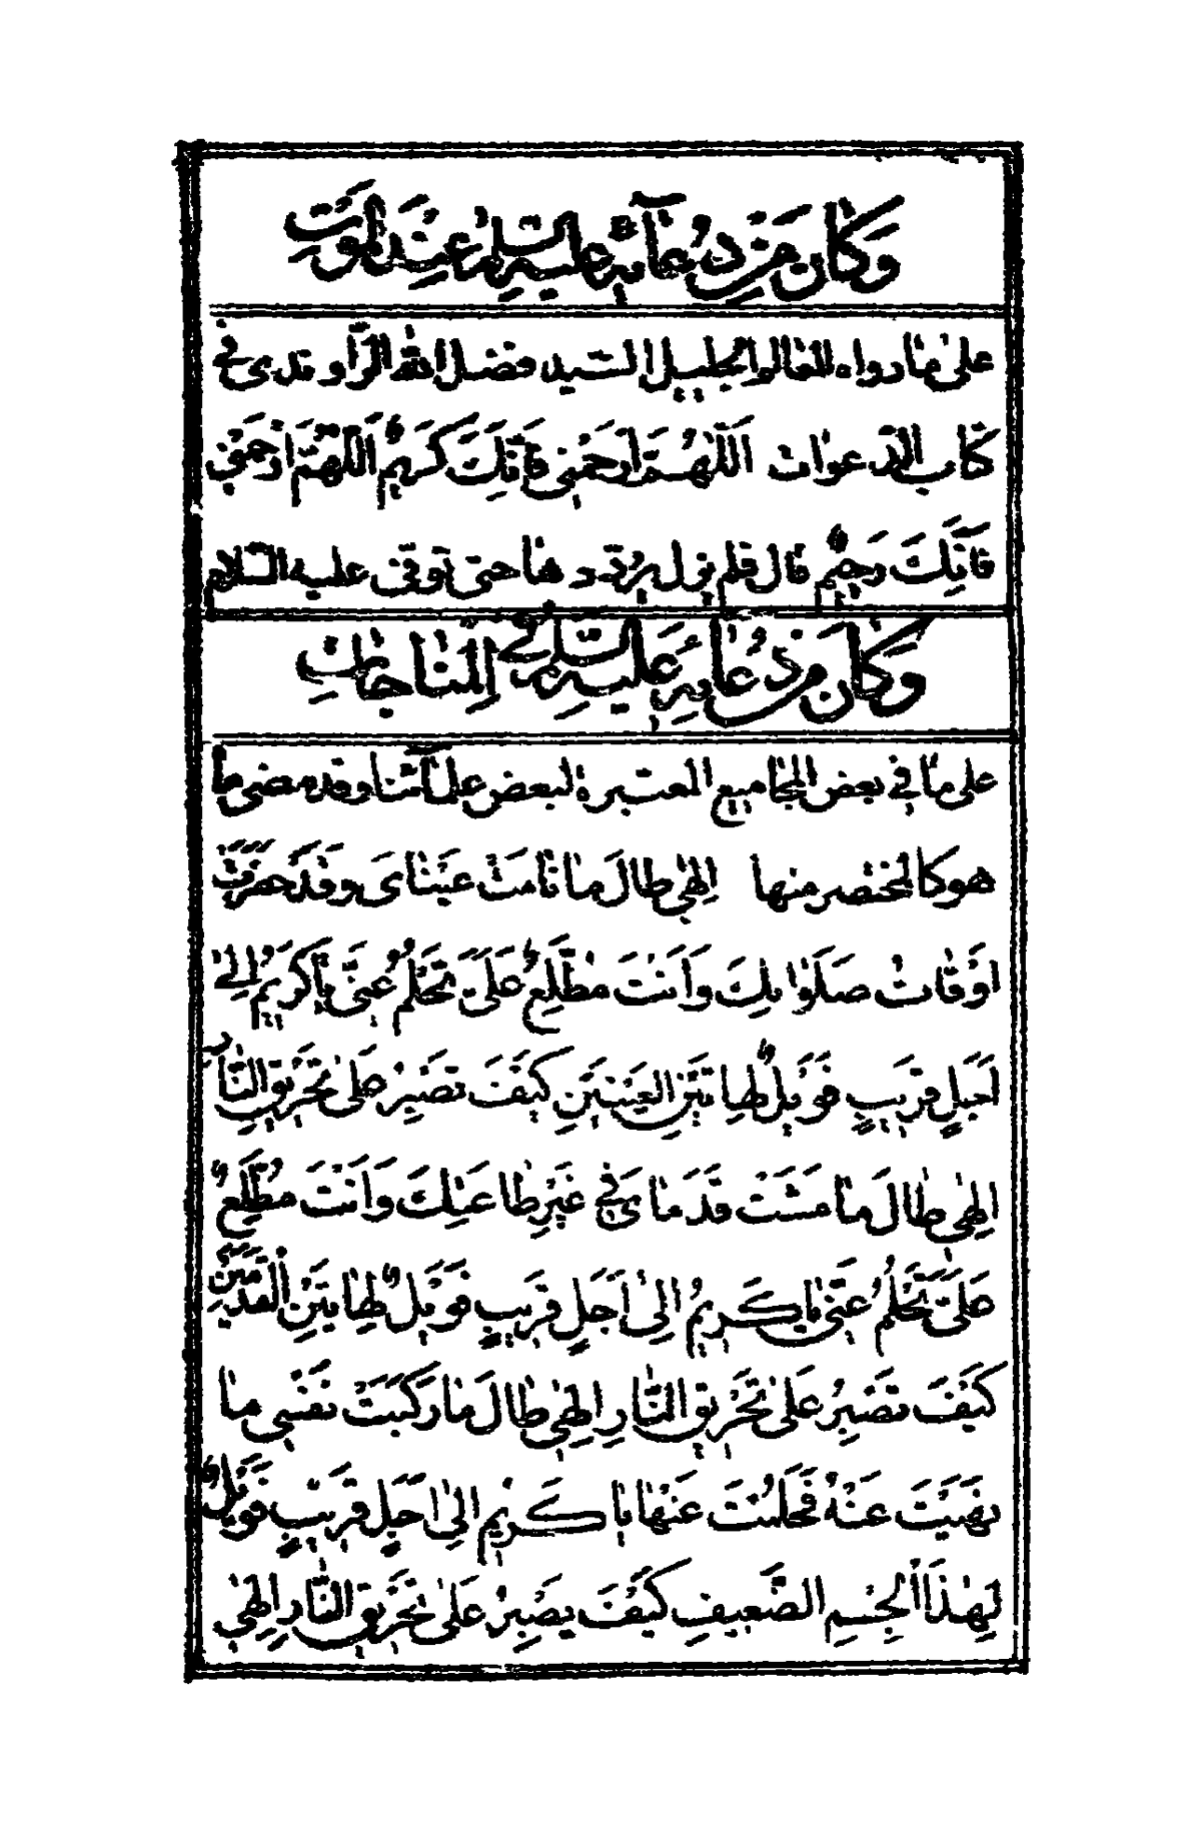 وَكانَ مِنْ دُعآئِهِ عليه السّلم عِنْدَ الْمَوْتِ
على ما رواه العالم الجليل السّيد فضل اللّه الرّاوندى فى
كتاب الدّعوات اَللّهُمَّ ارْحَمْنى فَاِنَّكَ كَريمٌ اَللّهُمَّ ارْحَمْنى
فَاِنَّكَ رَحيمٌ قال فلم يزل يردّدها حتى توفّى عليه السّلام
وَكانَ مِنْ دُعائِهِ عَليه السّلم فِي الْمُناجاتِ
على ما فى بعض المجاميع المعتبرة لبعض علمآئنا وقد مضى ما
هو كالمختصر منها اِلهى طالَ ما نامَتْ عَيْناىَ وَقَدْ حَضَرَتْ
اَوْقاتُ صَلَواتِكَ وَاَنْتَ مُطَّلِعٌ عَلَىَّ تَحْلُمُ عَنّى يا كَريمُ اِلى
اَجَلٍ قَريبٍ فَوَيْلٌ لِهاتَيْنِ الْعَيْنَيْنِ كَيْفَ تَصْبِرُ عَلى تَحْريقِ النّارِ
اِلهى طالَ ما مَشَتْ قَدَماىَ فى غَيْرِ طاعَتِكَ وَاَنْتَ مُطَّلِعٌ
عَلَىَّ تَحْلُمُ عَنّى يا كَريمُ اِلى اَجَلٍ قَريبٍ فَوَيْلٌ لِهاتَيْنِ الْقَدَمَيْنِ
كَيْفَ تَصْبِرُ عَلى تَحْريقِ النّارِ اِلهى طالَ ما رَكِبَتْ نَفْسى ما
نَهَيْتَ عَنْهُ فَحَلُمْتَ عَنْها يا كَريمُ اِلى اَجَلٍ قَريبٍ فَوَيْلٌ
لِهذَا الْجِسْمِ الضَّعيفِ كَيْفَ يَصْبِرُ عَلى تَحْريقِ النّارِ اِلهى